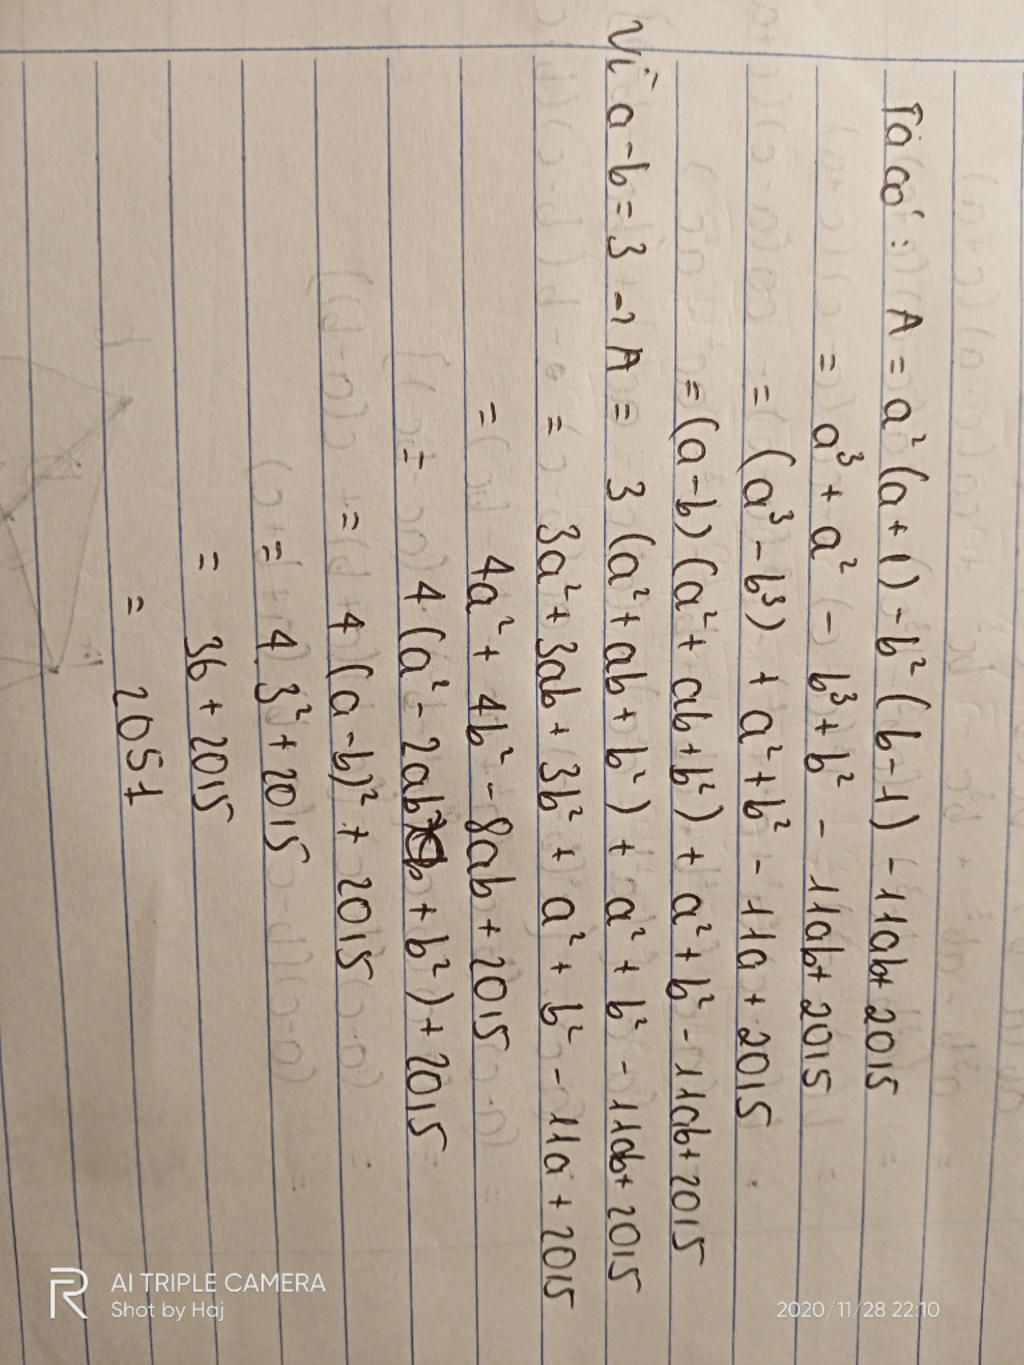 Ta có: A = a² (a+1) - b² (b-1) - 11ab + 2015
= a³ + a² - b³ + b² - 11ab + 2015
= (a³ - b³) + a² + b² - 11a + 2015
= (a-b) (a² + ab + b²) + a² + b² - 11ab + 2015
Vì a-b = 3 → A = 3 (a² + ab + b²) + a² + b² - 11ab + 2015
= 3a² + 3ab + 3b² + a² + b² - 11a + 2015
= 4a² + 4b² - 8ab + 2015
= 4 (a² - 2ab + b²) + 2015
= 4 (a-b)² + 2015
= 4.3² + 2015
= 36 + 2015
= 2051
AI TRIPLE CAMERA
Shot by Haj
2020/11/28 22:10